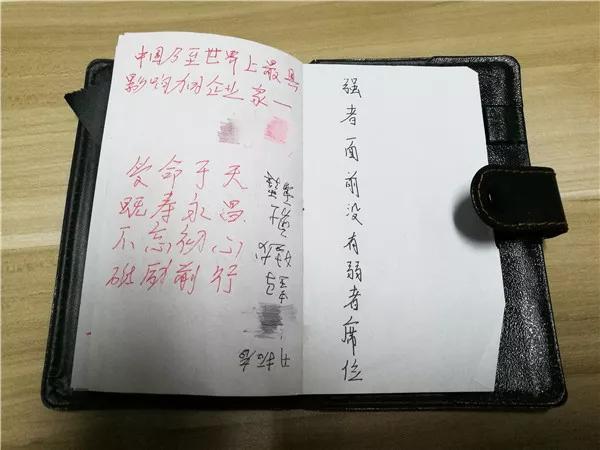 中国乃至世界上最具
影响力的企业家一
受命于天
既寿永昌
不忘初心
砥砺前行
强者面前没有弱者席位